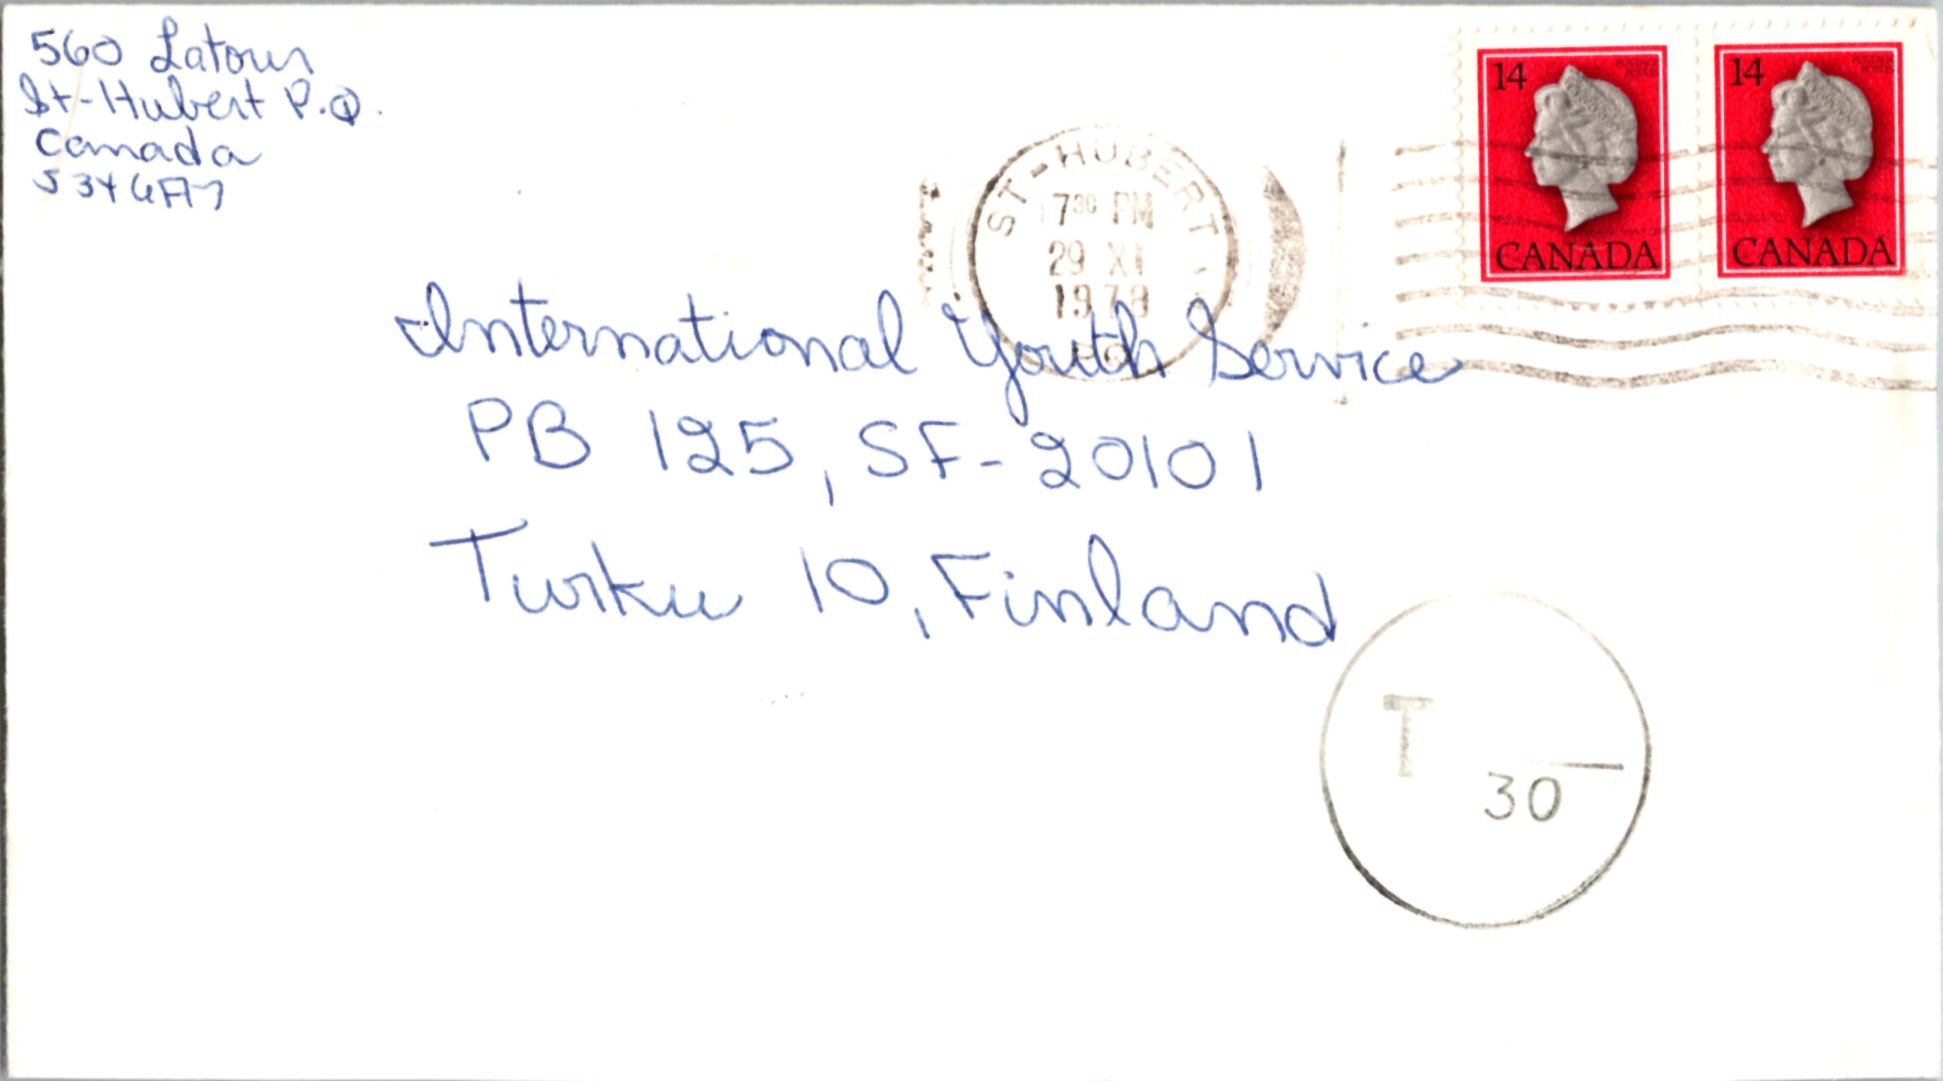 560 Latour
St-Hubert P.Q.
Canada
J3Y 6A7
14
POSTAGE
POSTES
CANADA
14
POSTAGE
POSTES
CANADA
ST-HUBERT
7³⁰ PM
29 XI
1979
International Youth Service
PB 125, SF-20101
Turku 10, Finland
T
30